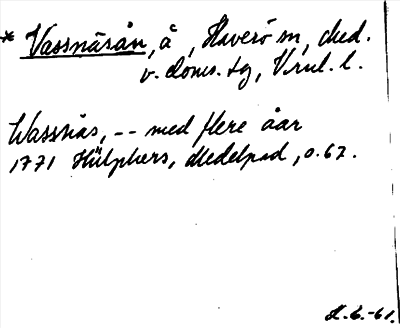 * Vassnäsån, å, Haverö sn, Med.
v. doms. tg, Vrnl. l.
Wassnäs, -- med flere åar
1771 Hülphers, Medelpad, s. 62.
H. L. -61.